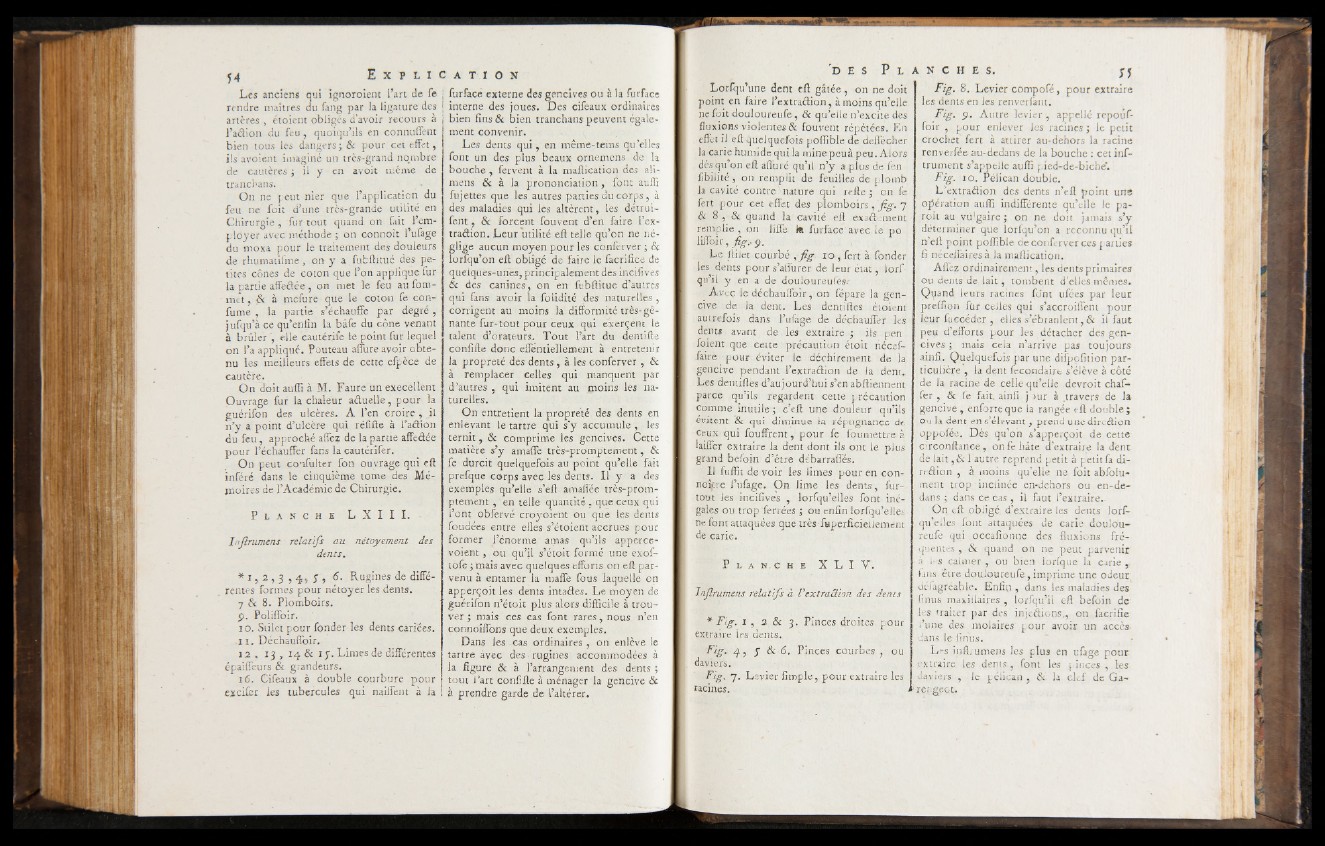 54 EXPLICATION
Les anciens qui ignoroient l'art de ſe
rendre maîtres du ſang par la ligature des
artères, étoient obligés d'avoir recours à
l'action du feu, quoiqu'ils en connuſſent
bien tous les dangers; & pour cet effet,
ils avoient imaginé un très-grand nombre
de cautères; il y en avoit même de
tranchans.
On ne peut nier que l'application du
feu ne ſoit d'une très-grande utilité en
Chirurgie, ſur-tout quand on ſait l'em-
ployer avec méthode; on connoît l'uſage
du moxa pour le traitement des douleurs
de rhumatiſme, on y a ſubſtitué des pe-
tites cônes de coton que l'on applique ſur
la partie affectée, on met le feu au ſom-
met, & à meſure que le coton ſe con-
ſume, la partie s'échauffe par degré,
juſqu'à ce qu'enfin la bâſe du cône venant
à brûler, elle cautériſe le point ſur lequel
on l'a appliqué. Pouteau aſſure avoir obte-
nu les meilleurs effets de cette eſpèce de
cautère.
On doit auſſi à M. Faure un execellent
Ouvrage ſur la chaleur actuelle, pour la
guériſon des ulcères. A l'en croire, il
n'y a point d'ulcère qui réſiſte à l'action
du feu, approché aſſez de la partie affectée
pour l'échauffer ſans la cautériſer.
On peut conſulter ſon ouvrage qui eſt
inſéré dans le cinquième tome des Mé-
moires de l'Académie de Chirurgie.
PLANCHE LXIII.
Inſtrumens relatifs au nétoyement des
dents.
* 1, 2, 3, 4, 5, 6. Rugines de diffé-
rentes formes pour nétoyer les dents.
7 & 8. Plomboirs.
9. Poliſſoir.
10. Stilet pour ſonder les dents cariées.
11. Déchauſſoir.
12, 13, 14 & 15. Limes de différentes
épaiſſeurs & grandeurs.
16. Ciſeaux à double courbure pour
exciſer les tubercules qui naiſſent à la
ſurface externe des gencives ou à la ſurface
interne des joues. Des ciſeaux ordinaires
bien fins & bien tranchans peuvent égale-
ment convenir.
Les dents qui, en même-tems qu'elles
ſont un des plus beaux ornemens de la
bouche, ſervent à la maſtication des ali-
mens & à la prononciation, ſont auſſi
ſujettes que les autres parties du corps, à
des maladies qui les altèrent, les détrui-
ſent, & forcent ſouvent d'en faire l'ex-
traction. Leur utilité eſt telle qu'on ne né-
glige aucun moyen pour les conſerver; &
lorſqu'on eſt obligé de faire le ſacrifice de
quelques-unes, principalement des inciſives
& des canines, on en ſubſtitue d'autres
qui ſans avoir la ſolidité des naturelles,
corrigent au moins la difformité très-gé-
nante ſur-tout pour ceux qui exerçent le
talent d'orateurs. Tout l'art du dentiſte
conſiſte donc eſſentiellement à entretenir
la propreté des dents, à les conſerver, &
à remplacer celles qui manquent par
d'autres, qui imitent au moins les na-
turelles.
On entretient la propreté des dents en
enlevant le tartre qui s'y accumule, les
ternit, & comprime les gencives. Cette
matière s'y amaſſe très-promptement, &
ſe durcit quelquefois au point qu'elle fait
preſque corps avec les dents. Il y a des
exemples qu'elle s'eſt amaſſée très-prom-
ptement, en telle quantité, que ceux qui
l'ont obſervé croyoient ou que les dents
ſoudées entre elles s'étoient accrues pour
former l'énorme amas qu'ils apperce-
voient, ou qu'il s'étoit formé une exoſ-
toſe; mais avec quelques efforts on eſt par-
venu à entamer la maſſe ſous laquelle on
apperçoit les dents intactes. Le moyen de
guériſon n'étoit plus alors difficile à trou-
ver; mais ces cas ſont rares, nous n'en
connoiſſons que deux exemples.
Dans les cas ordinaires, on enlève le
tartre avec des rugines accommodées à
la figure & à l'arrangement des dents;
tout l'art conſiſte à ménager la gencive &
à prendre garde de l'altérer.
DES PLANCHES. 55
Lorſqu'une dent eſt gâtée, on ne doit
point en faire l'extraction, à moins qu'elle
ne ſoit douloureuſe, & qu'elle n'excite des
fluxions violentes & ſouvent répétées. En
effet il eſt quelquefois poſſible de deſſécher
la carie humide qui la mine peu à peu. Alors
dès qu'on eſt aſſuré qu'il n'y a plus de ſen-
ſibilité, on remplit de feuilles de plomb
la cavité contre nature qui reſte; on ſe
ſert pour cet effet des plomboirs, fig. 7
& 8, & quand la cavité eſt exactement
remplie, on liſſe la ſurface avec le po
liſſoir, fig. 9.
Le ſtilet courbé, fig. 10, ſert à ſonder
les dents pour s'aſſurer de leur état, lorſ-
qu'il y en a de douloureuſes.
Avec le déchauſſoir, on ſépare la gen-
cive de la dent. Les dentiſtes étoient
autrefois dans l'uſage de déchauſſer les
dents avant de les extraire; ils pen-
ſoient que cette précaution étoit néceſ-
ſaire pour éviter le déchirement de la
gencive pendant l'extraction de la dent.
Les dentiſtes d'aujourd'hui s'en abſtiennent
parce qu'ils regardent cette précaution
comme inutile; c'eſt une douleur qu'ils
évitent & qui diminue la répugnance de
ceux qui ſouffrent, pour ſe ſoumettre à
laiſſer extraire la dent dont ils ont le plus
grand beſoin d'être débarraſſés.
Il ſuffit de voir les limes pour en con-
noître l'uſage. On lime les dents, ſur-
tout les inciſives, lorſqu'elles ſont iné-
gales ou trop ſerrées; ou enfin lorſqu'elles
ne ſont attaquées que très ſuperficiellement
de carie.
PLANCHE XLIV.
Inſtrumens relatifs à l'extraction des dents
* Fig. 1, 2 & 3. Pinces droites pour
extraire les dents.
Fig. 4, 5 & 6. Pinces courbes, ou
daviers.
Fig. 7. Levier ſimple, pour extraire les
racines.
Fig. 8. Levier compoſé, pour extraire
les dents en les renverſant.
Fig. 9. Autre levier, appellé repouſ-
ſoir, pour enlever les racines; le petit
crochet ſert à attirer au-dehors la racine
renverſée au-dedans de la bouche: cet inſ-
trument s'appelle auſſi pied-de-biche.
Fig. 10. Pélican double.
L'extraction des dents n'eſt point une
opération auſſi indifférente qu'elle le pa-
roît au vulgaire; on ne doit jamais s'y
déterminer que lorſqu'on a reconnu qu'il
n'eſt point poſſible de conſerver ces parties
ſi néceſſaires à la maſtication.
Aſſez ordinairement, les dents primaires
ou dents de lait, tombent d'elles mêmes.
Quand leurs racines ſont uſées par leur
preſſion ſur celles qui s'accroiſſent pour
leur ſuccéder, elles s'ébranlent, & il faut
peu d'efforts pour les détacher des gen-
cives; mais cela n'arrive pas toujours
ainſi. Quelquefois par une diſpoſition par-
ticulière, la dent ſecondaire s'élève à côté
de la racine de celle qu'elle devroit chaſ-
ſer, & ſe fait ainſi jour à travers de la
gencive, enſorte que la rangée eſt double;
ou la dent en s'élevant, prend une direction
oppoſée. Dès qu'on s'apperçoit de cette
circonſtance, on ſe hâte d'extraire la dent
de lait, & l'autre reprend petit à petit ſa di-
rection, à moins qu'elle ne ſoit abſolu-
ment trop inclinée en-dehors ou en-de-
dans; dans ce cas, il faut l'extraire.
On eſt obligé d'extraire les dents lorſ-
qu'elles ſont attaquées de carie doulou-
reuſe qui occaſionne des fluxions fré-
quentes, & quand on ne peut parvenir
à les calmer, ou bien lorſque la carie,
ſans être douloureuſe, imprime une odeur
déſagréable. Enfin, dans les maladies des
ſinus maxillaires, lorſqu'il eſt beſoin de
les traiter par des injections, on ſacrifie
l'une des molaires pour avoir un accès
dans le ſinus.
Les inſtrumens les plus en uſage pour
extraire les dents, ſont les pinces, les
daviers, le pélican, & la clef de Ga-
rengeot.